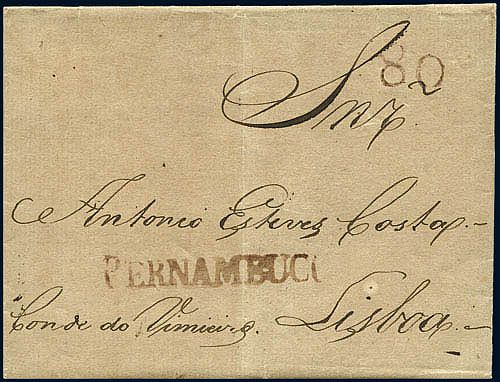 80
Snr
Antonio Esteves Costa.
PERNAMBUCO
Conde do Vimieiro. Lisboa.